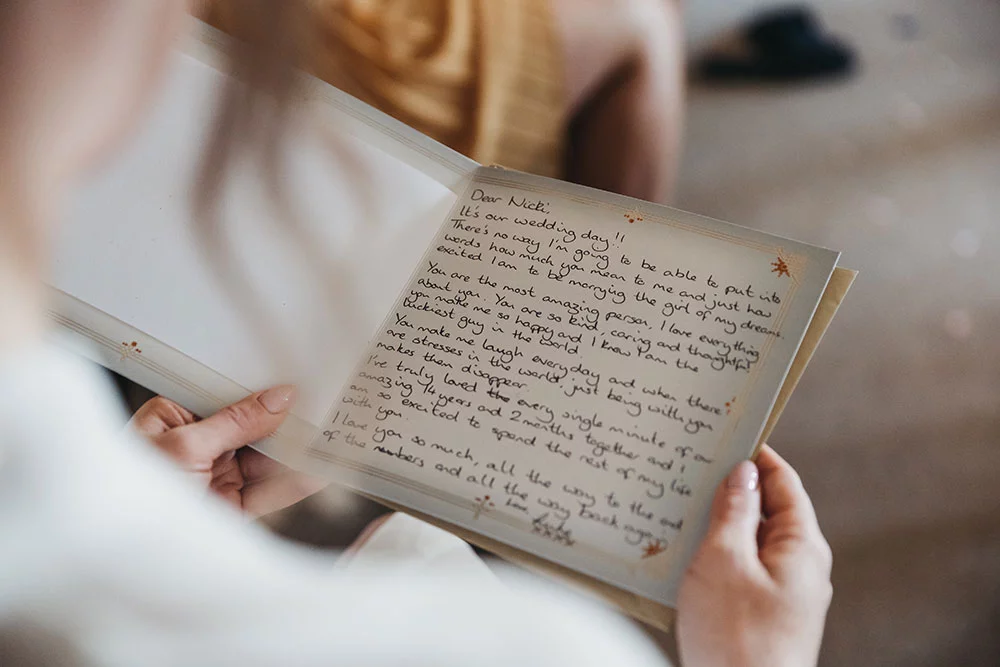 Dear Nicki,
It's our wedding day!!
There's no way I'm going to be able to put into
words how much you mean to me and just how
excited I am to be marrying the girl of my dreams.
You are the most amazing person, I love everything
about you. You are so kind, caring and thoughtful
you make me so happy and I know I am the
luckiest guy in the world.
You make me laugh everyday and when there
are stresses in the world, just being with you
makes them disappear.
I've truly loved the every single minute of our
amazing 14 years and 2 months together and I
am so excited to spend the rest of my life
with you.
I love you so much, all the way to the end
of the numbers and all the way back again
Love
xxxx